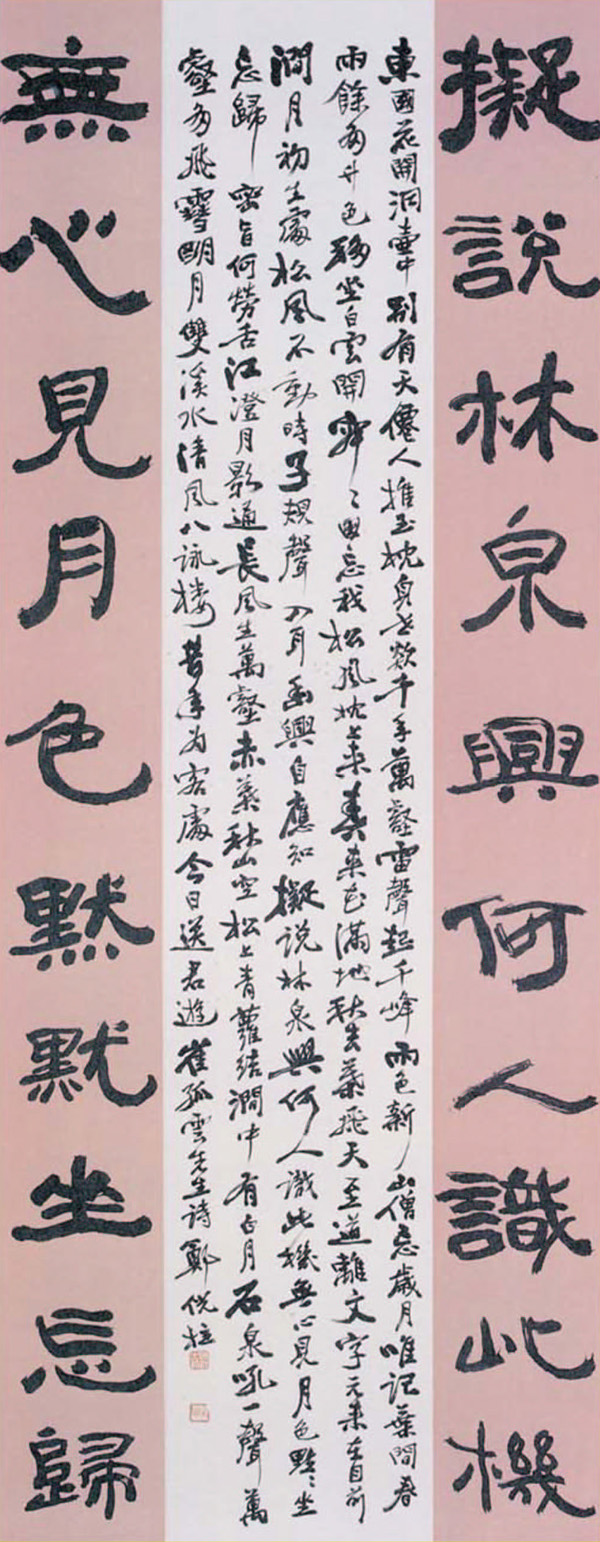 擬說林泉興何人識此機
東國花開洞壺中別有天僊人推玉枕身世欻千年萬壑雷聲起千峰雨色新山僧忘歲月唯記葉間春
雨餘多竹色移坐白雲開寂〻因忘我松風枕上來春來花滿地秋去葉飛天至道離文字元來在目前
澗月初生處松風不動時子規聲入耳幽興自應知擬說林泉興何人識此機無心見月色默〻坐
忘歸密旨何勞舌江澄月影通長風生萬壑赤葉秋山空松上青蘿結澗中有白月石泉吼一聲萬
壑多飛雪明月雙溪水清風八詠樓昔年為客處今日送君遊崔孤雲先生詩鄭
無心見月色默默坐忘歸